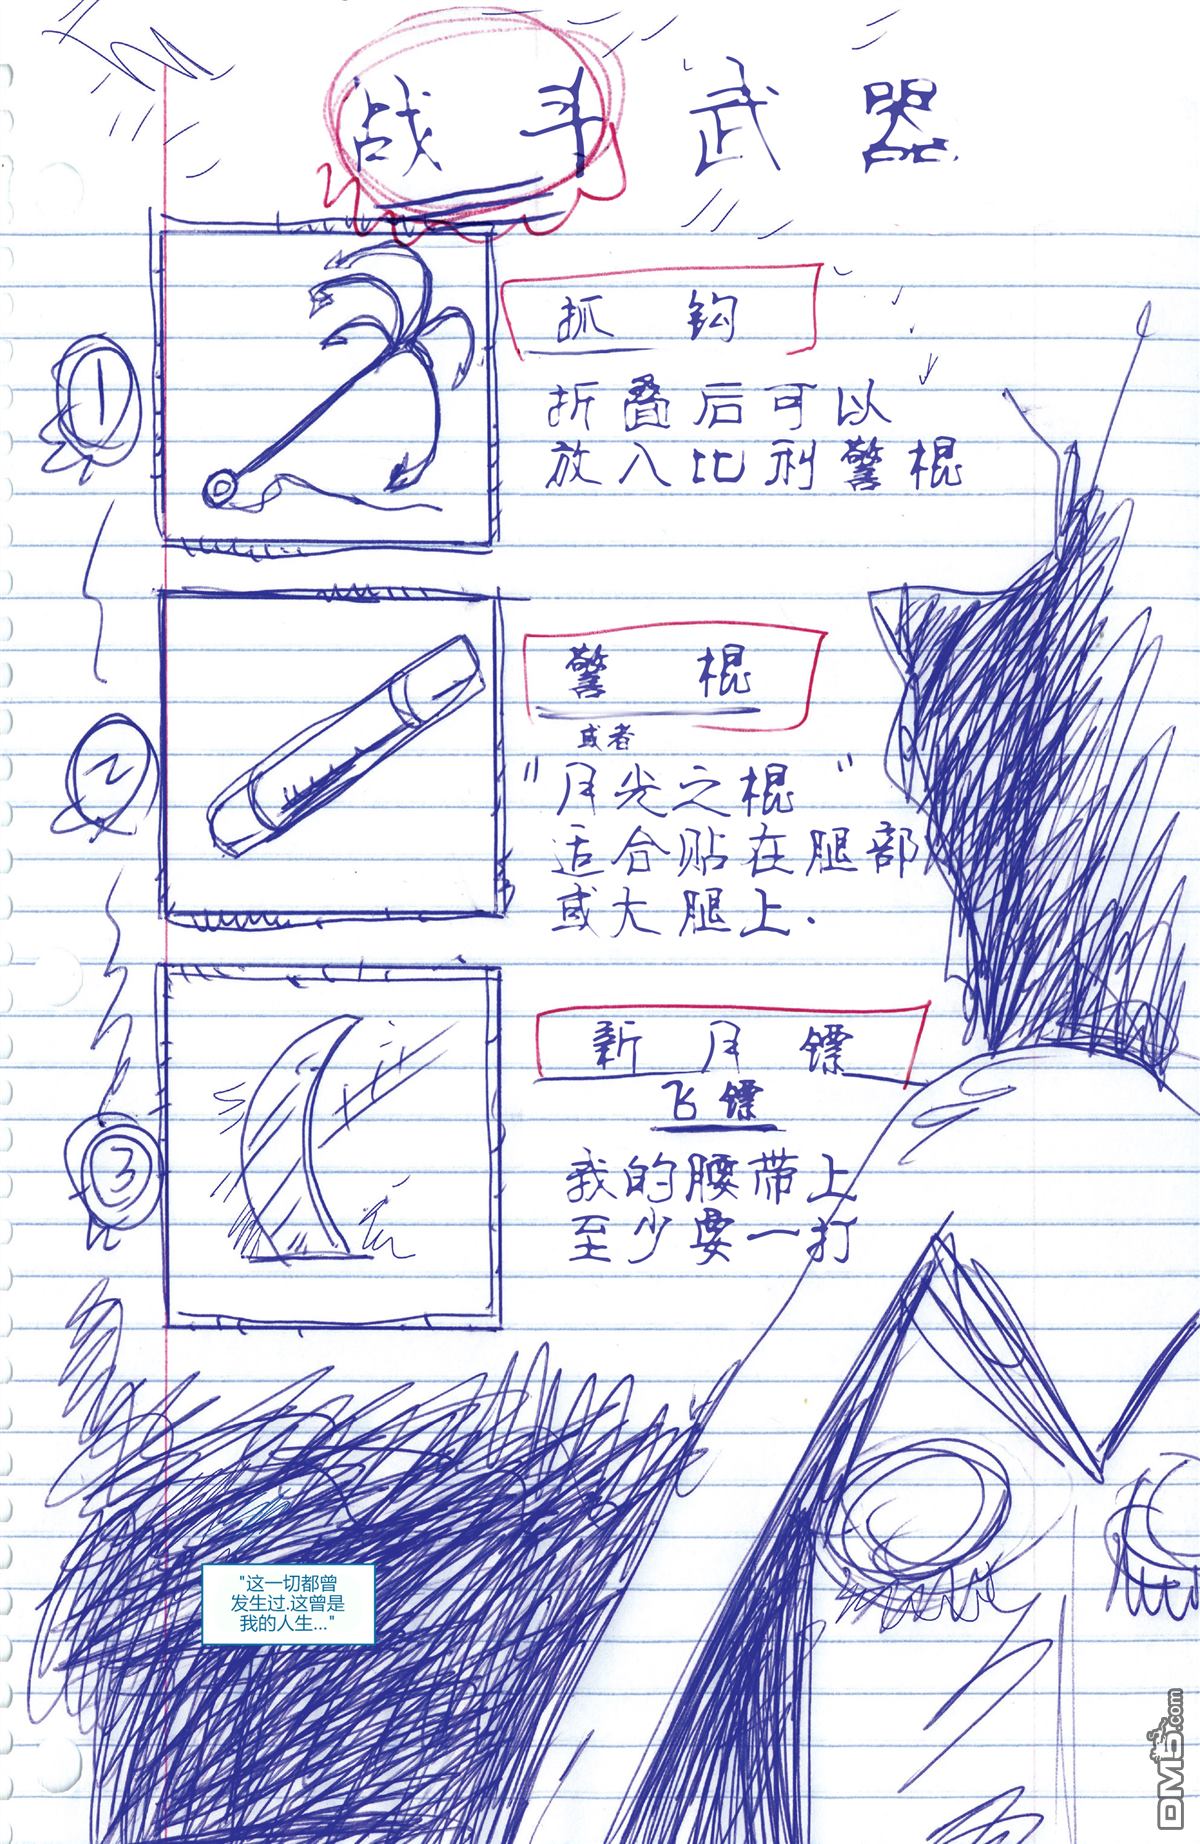 战斗武器
1
抓钩
折叠后可以
放入比利警棍
2
警棍
或者
"月光之棍"
适合贴在腿部
或大腿上.
3
新月镖
飞镖
我的腰带上
至少要一打
"这一切都曾
发生过.这曾是
我的人生..."
DM5.com